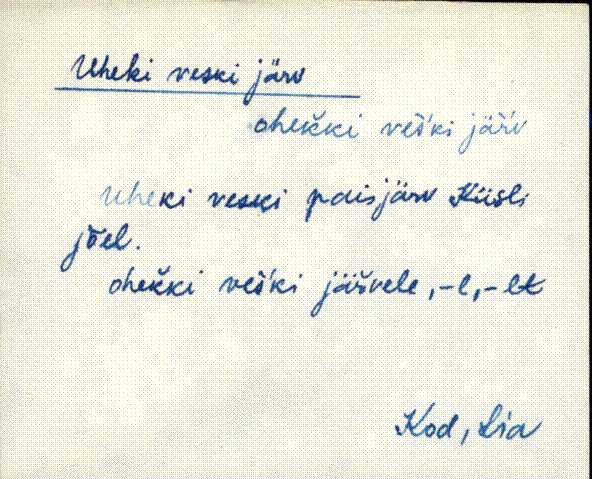 Uheki veski järv
ohek̆ki veš́ki jär̆v
Uheki veski paisjärv Küsli
jõel.
ohek̆ki veš́ki jär̆vele, -l, -lt
Kod, Lia